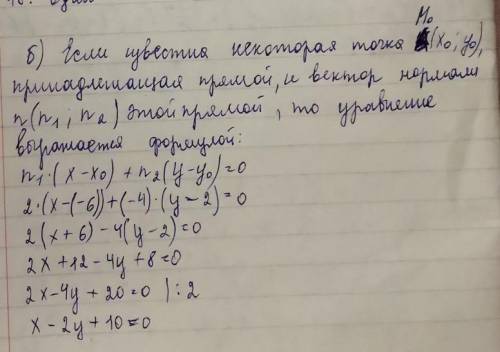 M₀
б) Если известна некоторая точка (x₀; y₀),
принадлежащая прямой, и вектор нормали
n(n₁; n₂) этой прямой, то уравнение
выражается формулой:
n₁·(x-x₀) + n₂(y-y₀)=0
2·(x-(-6))+(-4)·(y-2)=0
2(x+6)-4(y-2)=0
2x+12-4y+8=0
2x-4y+20=0 |:2
x-2y+10=0